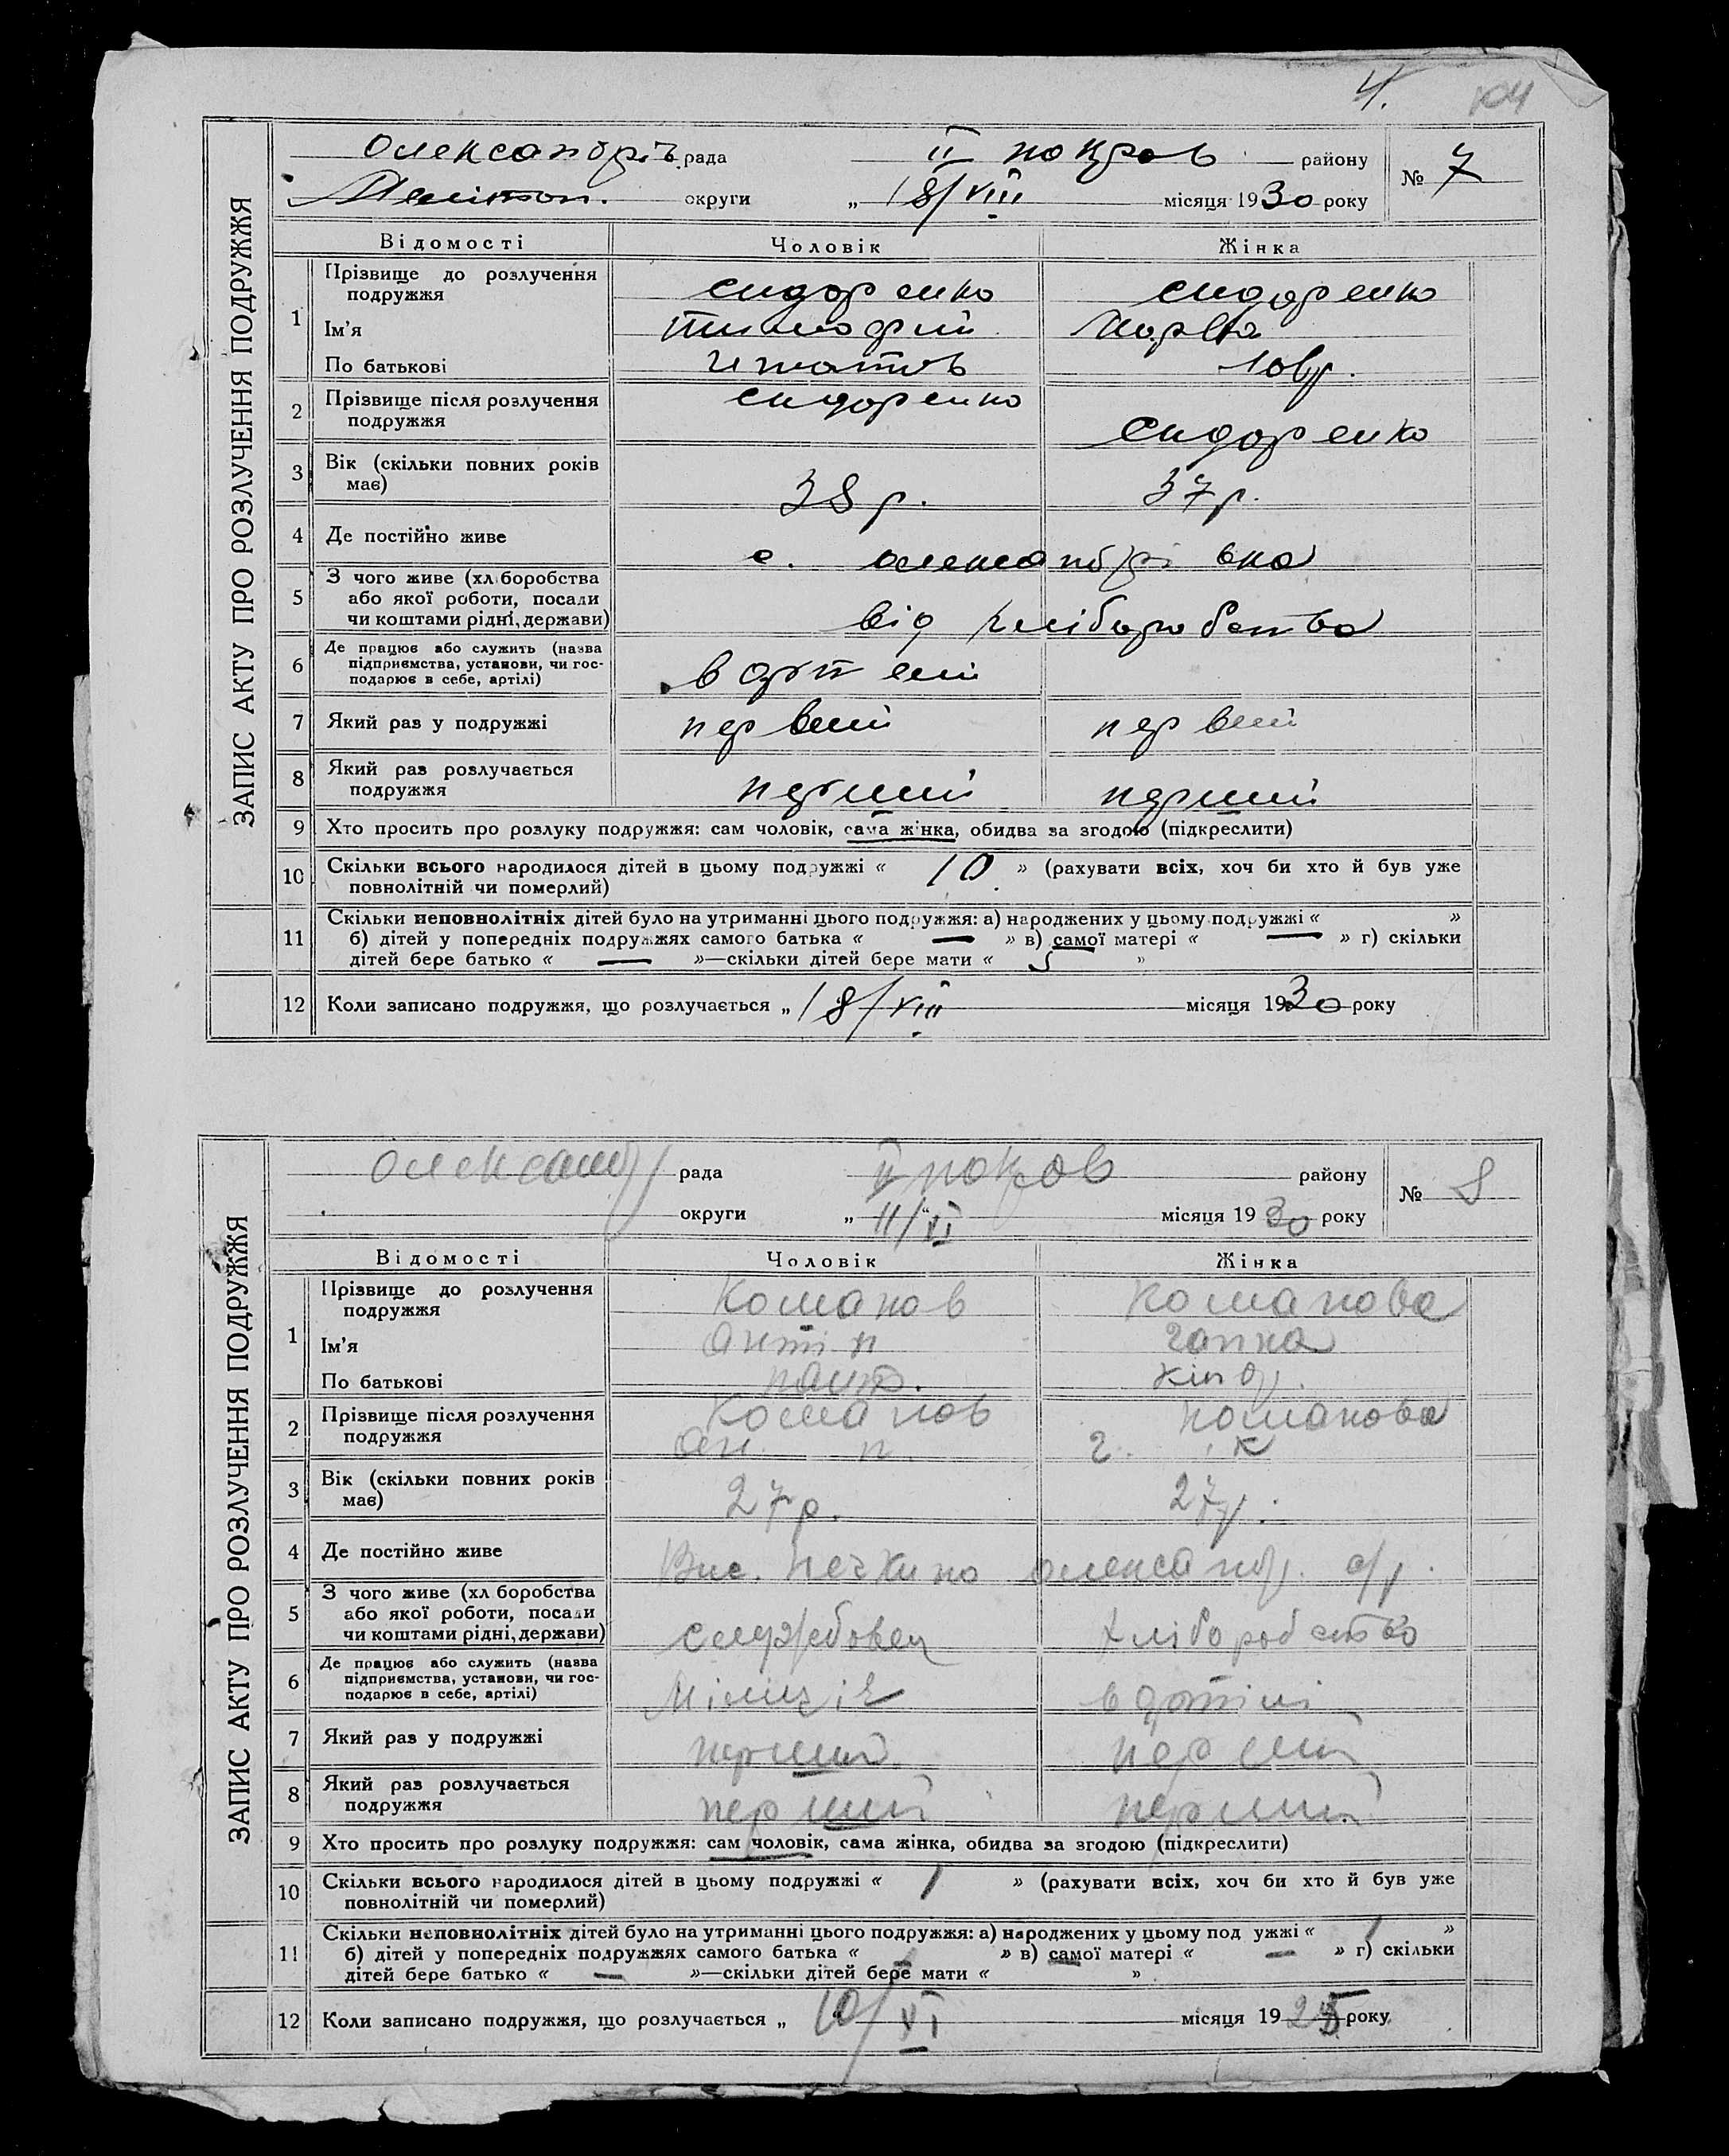 4. 104
ЗАПИС АКТУ ПРО РОЗЛУЧЕННЯ ПОДРУЖЖЯ
Олександрів рада II покров району № 7
Мелітоп. округи „ 18/VIII місяця 1930 року
Відомості Чоловік Жінка
1 Прізвище до розлучення Сидоренко Сидоренко
подружжя
Ім'я Тимофий Марфа
По батькові Игнатов
2 Прізвище після розлучення Сидоренко
подружжя Сидоренко
3 Вік (скільки повних років
має) 38 р. 37 р.
4 Де постійно живе с. Олександрівка
5 З чого живе (хліборобства
або якої роботи, посади
чи коштами рідні, держави) від хліборобства
6 Де працює або служить (назва
підприємства, установи, чи гос-
подарює в себе, артілі) в артелі
7 Який раз у подружжі первий первий
8 Який раз розлучається
подружжя перший перший
9 Хто просить про розлуку подружжя: сам чоловік, сама жінка, обидва за згодою (підкреслити)
10 Скільки всього народилося дітей в цьому подружжі « 10 » (рахувати всіх, хоч би хто й був уже
повнолітній чи померлий)
11 Скільки неповнолітніх дітей було на утриманні цього подружжя: а) народжених у цьому подружжі « »
б) дітей у попередніх подружжях самого батька « — » в) самої матері « — » г) скільки
дітей бере батько « — »—скільки дітей бере мати « 5 »
12 Коли записано подружжя, що розлучається „ 18/VIII місяця 1930 року
ЗАПИС АКТУ ПРО РОЗЛУЧЕННЯ ПОДРУЖЖЯ
Олександр рада II покров району № 8
округи „ 11/VI місяця 1930 року
Відомості Чоловік Жінка
1 Прізвище до розлучення Команов Команова
подружжя
Ім'я Антін Ганна
По батькові
2 Прізвище після розлучення Команов Команова
подружжя Ан. П. Г. К
3 Вік (скільки повних років
має) 27 р. 27 р.
4 Де постійно живе Вис. Олександр. с/р.
5 З чого живе (хліборобства
або якої роботи, посади
чи коштами рідні, держави) службовец хліборобство
6 Де працює або служить (назва
підприємства, установи, чи гос-
подарює в себе, артілі) Міліція в артілі
7 Який раз у подружжі перший перший
8 Який раз розлучається
подружжя перший перший
9 Хто просить про розлуку подружжя: сам чоловік, сама жінка, обидва за згодою (підкреслити)
10 Скільки всього народилося дітей в цьому подружжі « 1 » (рахувати всіх, хоч би хто й був уже
повнолітній чи померлий)
11 Скільки неповнолітніх дітей було на утриманні цього подружжя: а) народжених у цьому под ужжі « 1 »
б) дітей у попередніх подружжях самого батька « » в) самої матері « — » г) скільки
дітей бере батько « — »—скільки дітей бере мати « »
12 Коли записано подружжя, що розлучається „ 10/VI місяця 1925 року